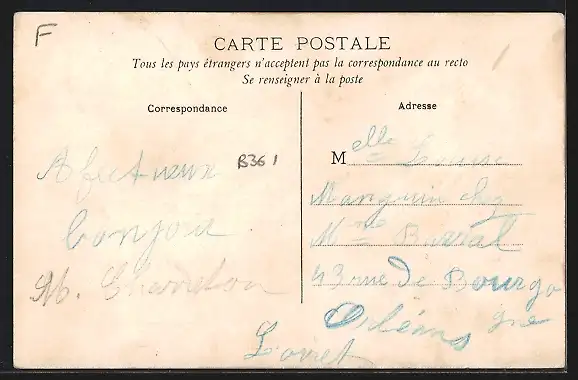 F
CARTE POSTALE
Tous les pays étrangers n'acceptent pas la correspondance au recto
Se renseigner à la poste
Correspondance
Afectueux
bonjou
M. Charreton
B361
Adresse
Melle Louise
Manguin chez
Mme Barral
43 rue de Bourgo
gne
Orléans
Loiret